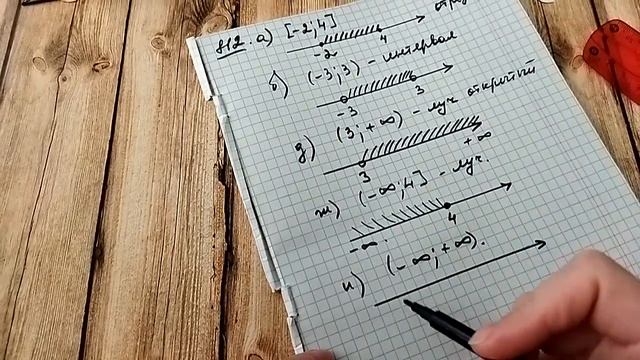 812. а) [-2; 4]
-2 4
б) (-3; 3) - интервал
-3 3
д) (3; +∞) - луч открытый
3 +∞
ж) (-∞; 4] - луч.
-∞ 4
и) (-∞; +∞).